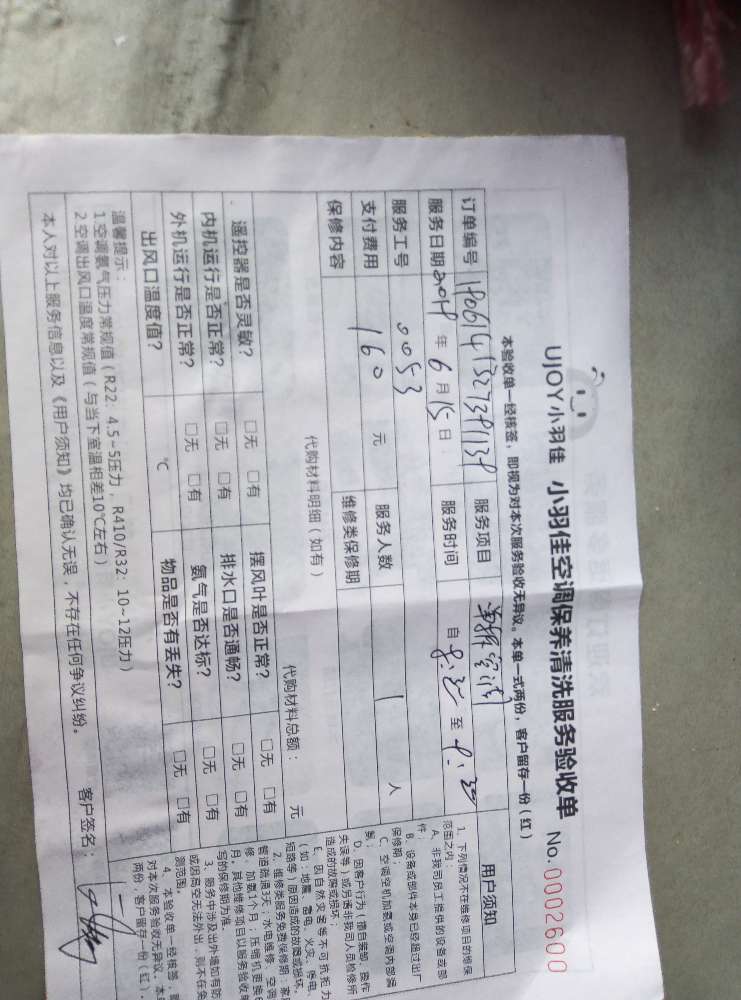 UJOY小羽佳 小羽佳空调保养清洗服务验收单 No.0002600
本验收单一经核签，即视为对本次服务验收无异议。本单一式两份，客户留存一份（红）
订单编号 服务项目
服务日期 年 6 月 15 日 服务时间 自 8:30 至
服务工号 0053 服务人数 1 人
支付费用 160 元 维修类保修期
保修内容
代购材料明细（如有） 代购材料总额： 元
遥控器是否灵敏？ □无 □有 摆风叶是否正常？ □无 □有
内机运行是否正常？ □无 □有 排水口是否通畅？ □无 □有
外机运行是否正常？ □无 □有 氨气是否达标？ □无 □有
出风口温度值？ ℃ 物品是否有丢失？ □无 □有
温馨提示：
1.空调氨气压力常规值（R22：4.5~5压力，R410/R32：10~12压力）
2.空调出风口温度常规值（与当下室温相差10℃左右）
本人对以上服务信息以及《用户须知》均已确认无误，不存在任何争议纠纷。 客户签名：
用户须知
1、下列情况不在维修项目的维保
范围之内：
A、非我司员工提供的设备或部
件；
B、设备或部件本身已经超过出厂
保修期；
C、空调空机加氨或空调内部漏
氨；
D、因客户行为（擅自装卸、操作
失误等）或另诱非我司人员检修所
造成的故障或损坏；
E、因自然灾害等不可抗拒力
（如：地震、雷电、火灾、停电、
短路等）原因造成的故障或损坏。
2、维修类服务免费保修期：家
管道疏通3天，水电维修、空调
修、加氨1个月，压缩机更换6
月，其他维修项目以服务验收单
写的保修期为准。
3、服务中涉及出外墙如有防
或因高空无法外出，则不在免
测范围。
4、本验收单一经核签，即
对本次服务验收无异议，本单
两份，客户留存一份（红）。